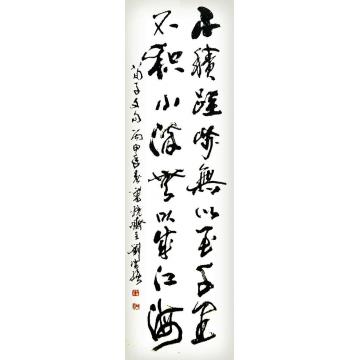 不積跬步無以至千里
不积小流無以成江海
荀子文句丙申